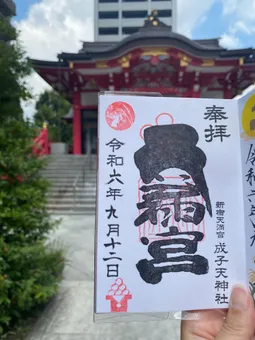 奉拝
天満宮
新宿天満宮
成子天神社
令和六年九月十二日
令和六年